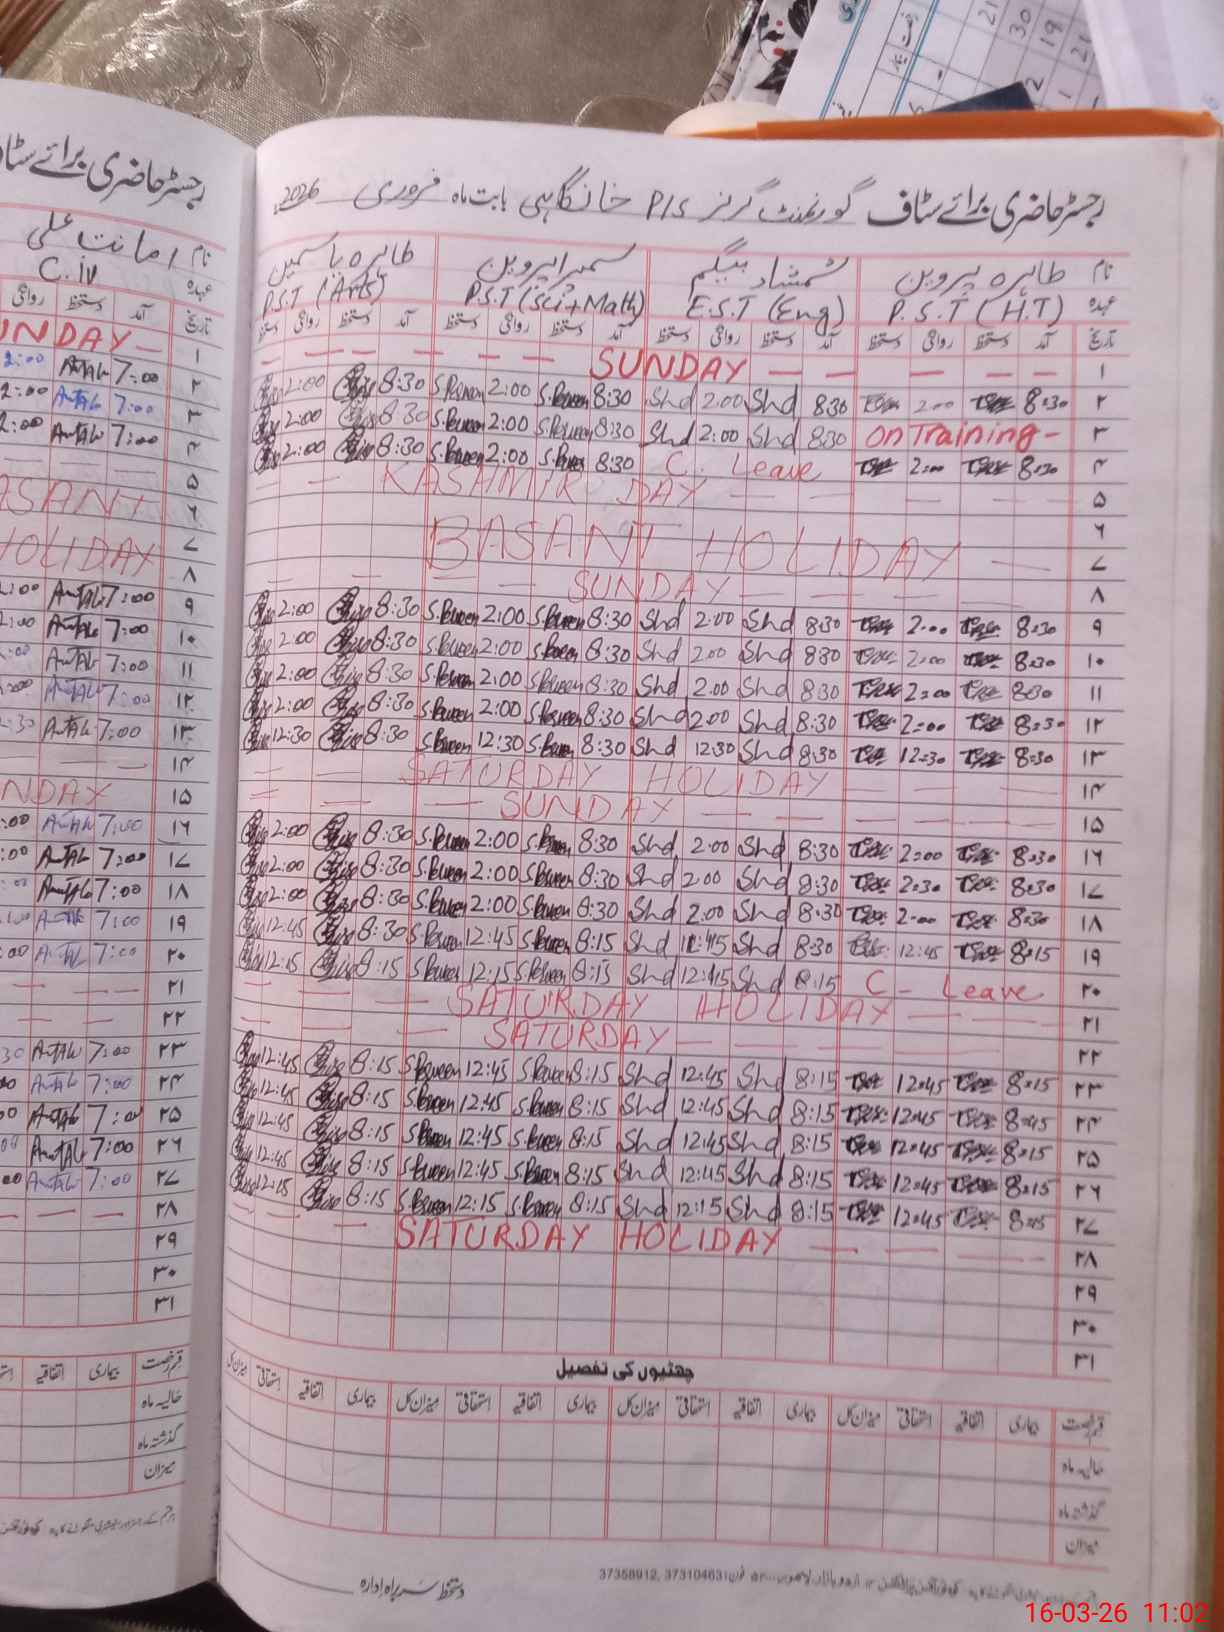 رجسٹر حاضری برائے سٹاف گورنمنٹ گرلز P/S خانگاہی بابت ماہ فروری 2026
نام طاہرہ پروین شمشاد بیگم سمیرا پروین طاہرہ یاسمین
عہدہ P.S.T (H.T) E.S.T (Eng) P.S.T (Sci+Math) P.S.T (Arts)
تاریخ آمد دستخط روانگی دستخط آمد دستخط روانگی دستخط آمد دستخط روانگی دستخط آمد دستخط روانگی دستخط
۱ SUNDAY
۲ 8:30 2:00 8:30 Shd 2:00 Shd 8:30 S.Perveen 2:00 S.Perveen 8:30 2:00
۳ On Training 8:30 Shd 2:00 Shd 8:30 S.Perveen 2:00 S.Perveen 8:30 2:00
۴ 8:30 2:00 C. Leave 8:30 S.Perveen 2:00 S.Perveen 8:30 2:00
۵ KASHMIR DAY
۶
۷ BASANT HOLIDAY
۸ SUNDAY
۹ 8:30 2:00 8:30 Shd 2:00 Shd 8:30 S.Perveen 2:00 S.Perveen 8:30 2:00
۱۰ 8:30 2:00 8:30 Shd 2:00 Shd 8:30 S.Perveen 2:00 S.Perveen 8:30 2:00
۱۱ 8:30 2:00 8:30 Shd 2:00 Shd 8:30 S.Perveen 2:00 S.Perveen 8:30 2:00
۱۲ 8:30 2:00 8:30 Shd 2:00 Shd 8:30 S.Perveen 2:00 S.Perveen 8:30 2:00
۱۳ 8:30 12:30 8:30 Shd 12:30 Shd 8:30 S.Perveen 12:30 S.Perveen 8:30 12:30
۱۴ SATURDAY HOLIDAY
۱۵ SUNDAY
۱۶ 8:30 2:00 8:30 Shd 2:00 Shd 8:30 S.Perveen 2:00 S.Perveen 8:30 2:00
۱۷ 8:30 2:30 8:30 Shd 2:00 Shd 8:30 S.Perveen 2:00 S.Perveen 8:30 2:00
۱۸ 8:30 2:00 8:30 Shd 2:00 Shd 8:30 S.Perveen 2:00 S.Perveen 8:30 2:00
۱۹ 8:15 12:45 8:30 Shd 12:45 Shd 8:15 S.Perveen 12:45 S.Perveen 8:30 12:45
۲۰ C - Leave 8:15 Shd 12:45 Shd 8:15 S.Perveen 12:15 S.Perveen 8:15 12:15
۲۱ SATURDAY HOLIDAY
۲۲ SATURDAY
۲۳ 8:15 12:45 8:15 Shd 12:45 Shd 8:15 S.Perveen 12:45 S.Perveen 8:15 12:45
۲۴ 8:15 12:45 8:15 Shd 12:45 Shd 8:15 S.Perveen 12:45 S.Perveen 8:15 12:45
۲۵ 8:15 12:45 8:15 Shd 12:45 Shd 8:15 S.Perveen 12:45 S.Perveen 8:15 12:45
۲۶ 8:15 12:45 8:15 Shd 12:45 Shd 8:15 S.Perveen 12:45 S.Perveen 8:15 12:45
۲۷ 8:15 12:45 8:15 Shd 12:15 Shd 8:15 S.Perveen 12:15 S.Perveen 8:15 12:15
۲۸ SATURDAY HOLIDAY
۲۹
۳۰
۳۱
چھٹیوں کی تفصیل
قسم رخصت بیماری اتفاقیہ استحقاقی میزان کل بیماری اتفاقیہ استحقاقی میزان کل بیماری اتفاقیہ استحقاقی میزان کل بیماری اتفاقیہ استحقاقی میزان کل
حالیہ ماہ
گذشتہ ماہ
میزان
37358912, 373104631
دستخط سربراہ ادارہ
رجسٹر حاضری برائے سٹاف
نام امانت علی
عہدہ C. IV
تاریخ آمد دستخط روانگی
۱ SUNDAY
۲ 7:00 2:00
۳ 7:00 2:00
۴ 7:00 2:00
۵
۶ BASANT
۷ HOLIDAY
۸
۹ 7:00 2:00
۱۰ 7:00 2:00
۱۱ 7:00
۱۲ 7:00
۱۳ 7:00 2:30
۱۴
۱۵ SUNDAY
۱۶ 7:00 :00
۱۷ 7:00 :00
۱۸ 7:00
۱۹ 7:00
۲۰ 7:00
۲۱
۲۲
۲۳ 7:00
۲۴ 7:00
۲۵ 7:00
۲۶ 7:00
۲۷ 7:00
۲۸
۲۹
۳۰
۳۱
قسم رخصت بیماری اتفاقیہ
حالیہ ماہ
گذشتہ ماہ
میزان
16-03-26 11:02